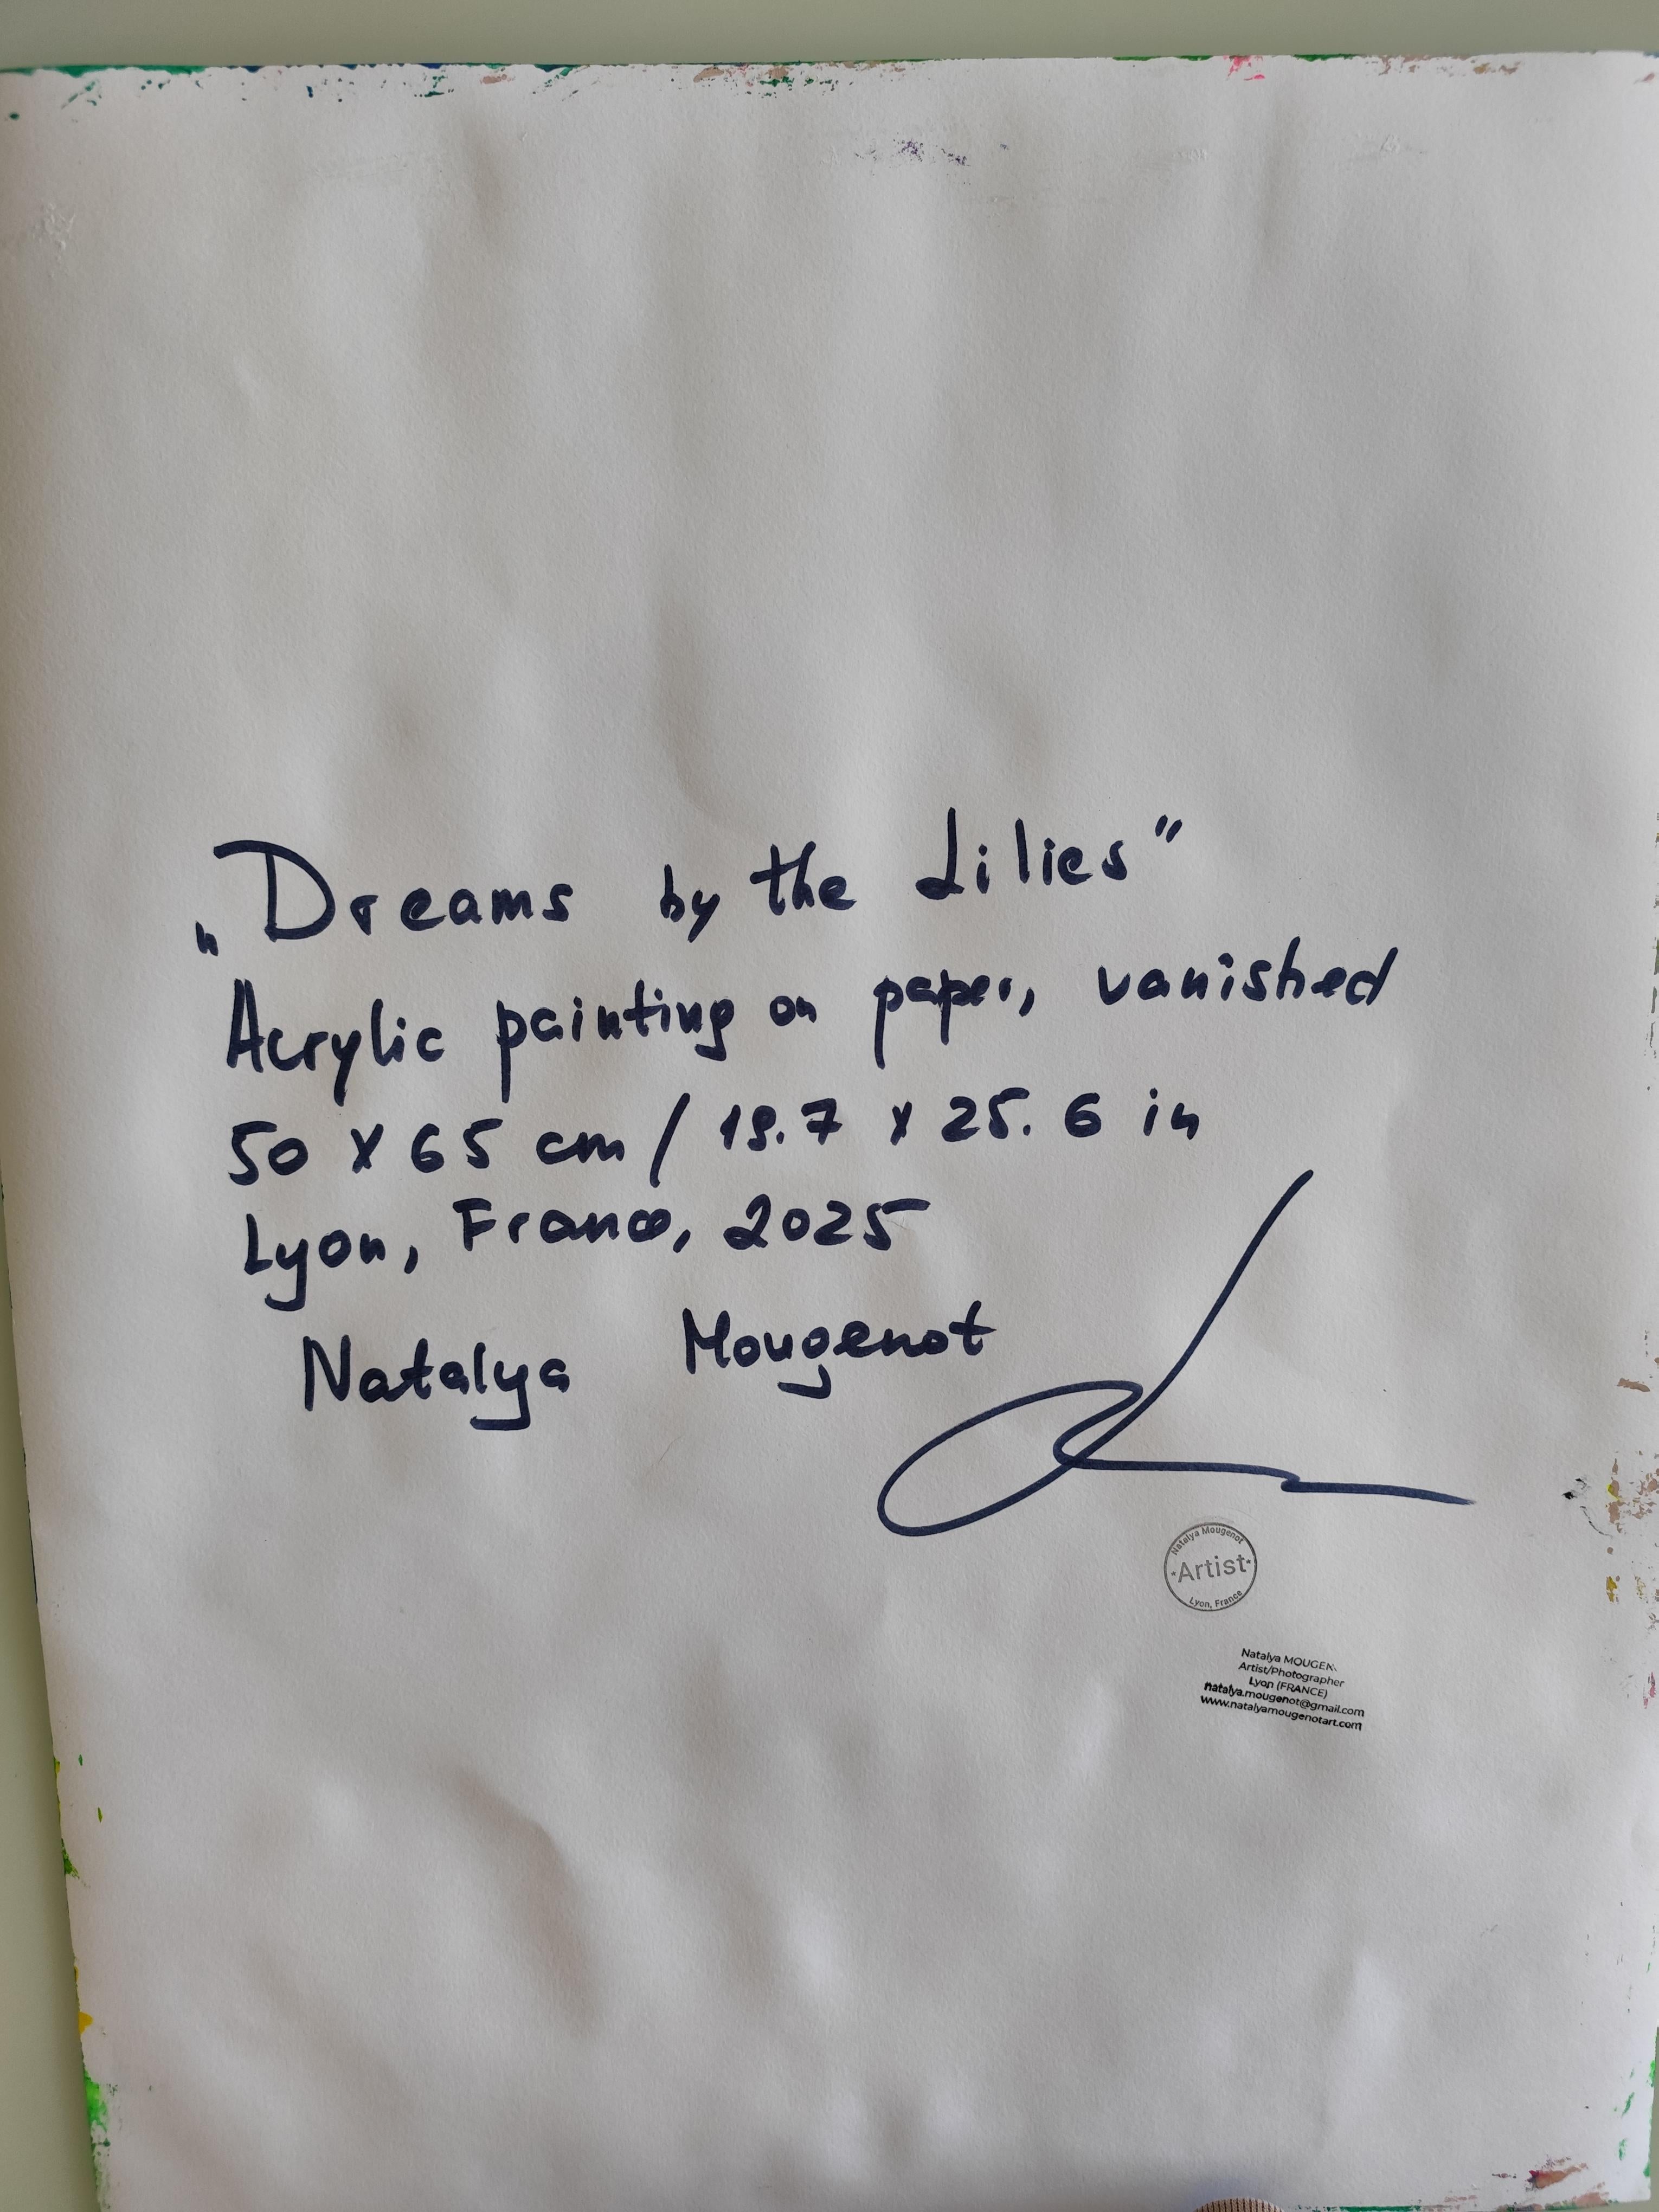 „Dreams by the Lilies”
Acrylic painting on paper, vanished
50 x 65 cm / 19.7 x 25.6 in
Lyon, France, 2025
Natalya Mougenot
Natalya Mougenot
·Artist·
Lyon, France
Natalya MOUGEN
Artist/Photographer
Lyon (FRANCE)
natalya.mougenot@gmail.com
www.natalyamougenotart.com